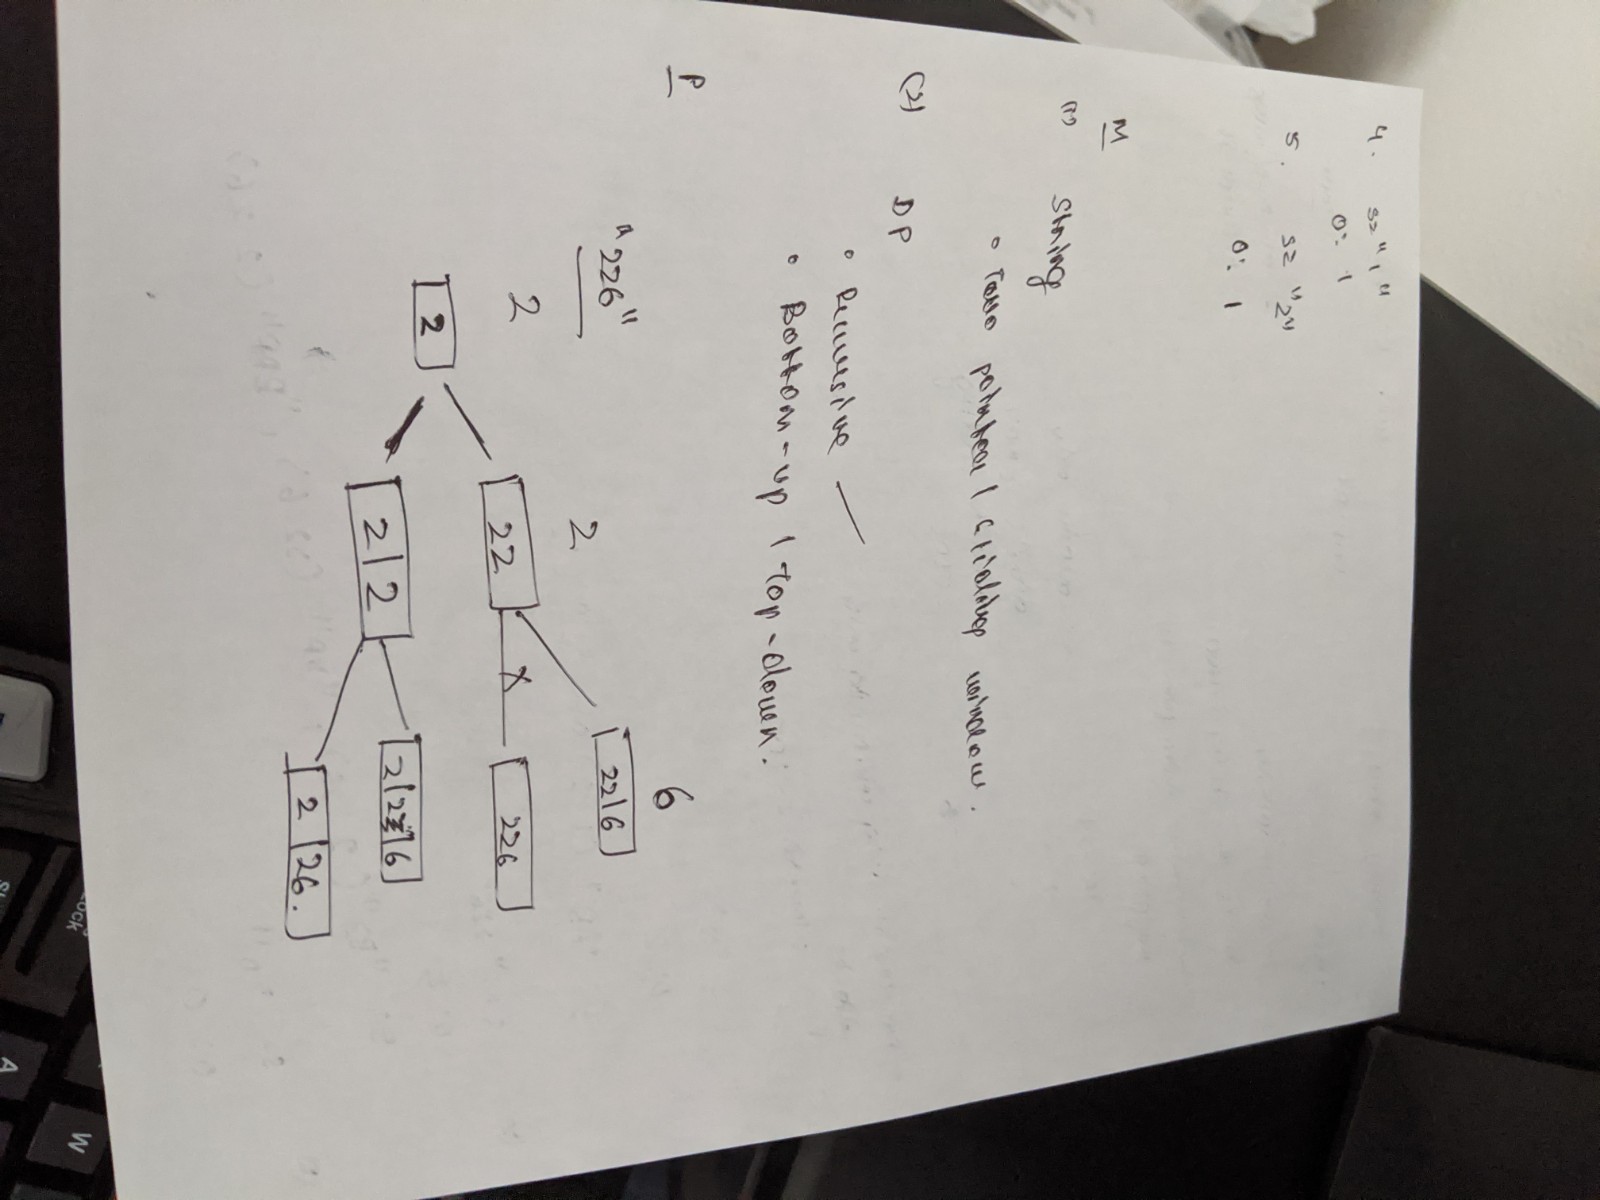 4. S= "1"
O: 1
5. S= "2"
O: 1
M
(1) String
• Two pointer / sliding window.
(2) DP
• Recursive —
• Bottom-up / top-down.
P
"226"
2 2 6
22|6
22
226
2
2|2
2|2|6
2|26.
A
W